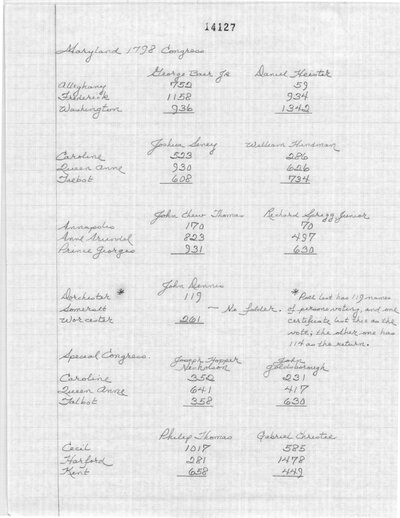 14127
Maryland 1798 Congress
George Baer Jr Daniel Heister
Alleghany 752 59
Frederick 1158 934
Washington 936 1342
Joshua Seney William Hindman
Caroline 523 286
Queen Anne 930 626
Talbot 608 734
John Chew Thomas Richard Sprigg Junior
Annapolis 170 70
Anne Arundel 823 497
Prince Georges 931 630
John Dennis
Dorchester * 119 * Poll list has 119 names
Somersett — No folder. of persons voting, and one
Worcester 261 certificate list this as the
vote; the other one has
114 as the return.
Special Congress Joseph Hopper John
Nicholson Goldsborough
Caroline 352 231
Queen Anne 641 417
Talbot 358 630
Philip Thomas Gabriel Christie
Cecil 1017 585
Harford 281 1478
Kent 658 449